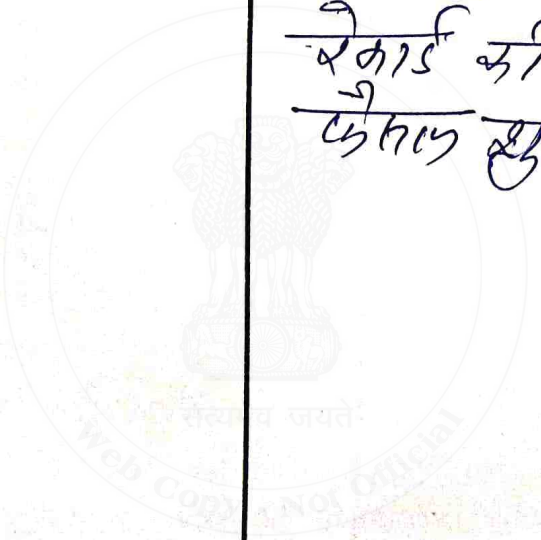 रेकार्ड की
फैसल शु
सत्यमेव जयते
Web Copy - Not Official